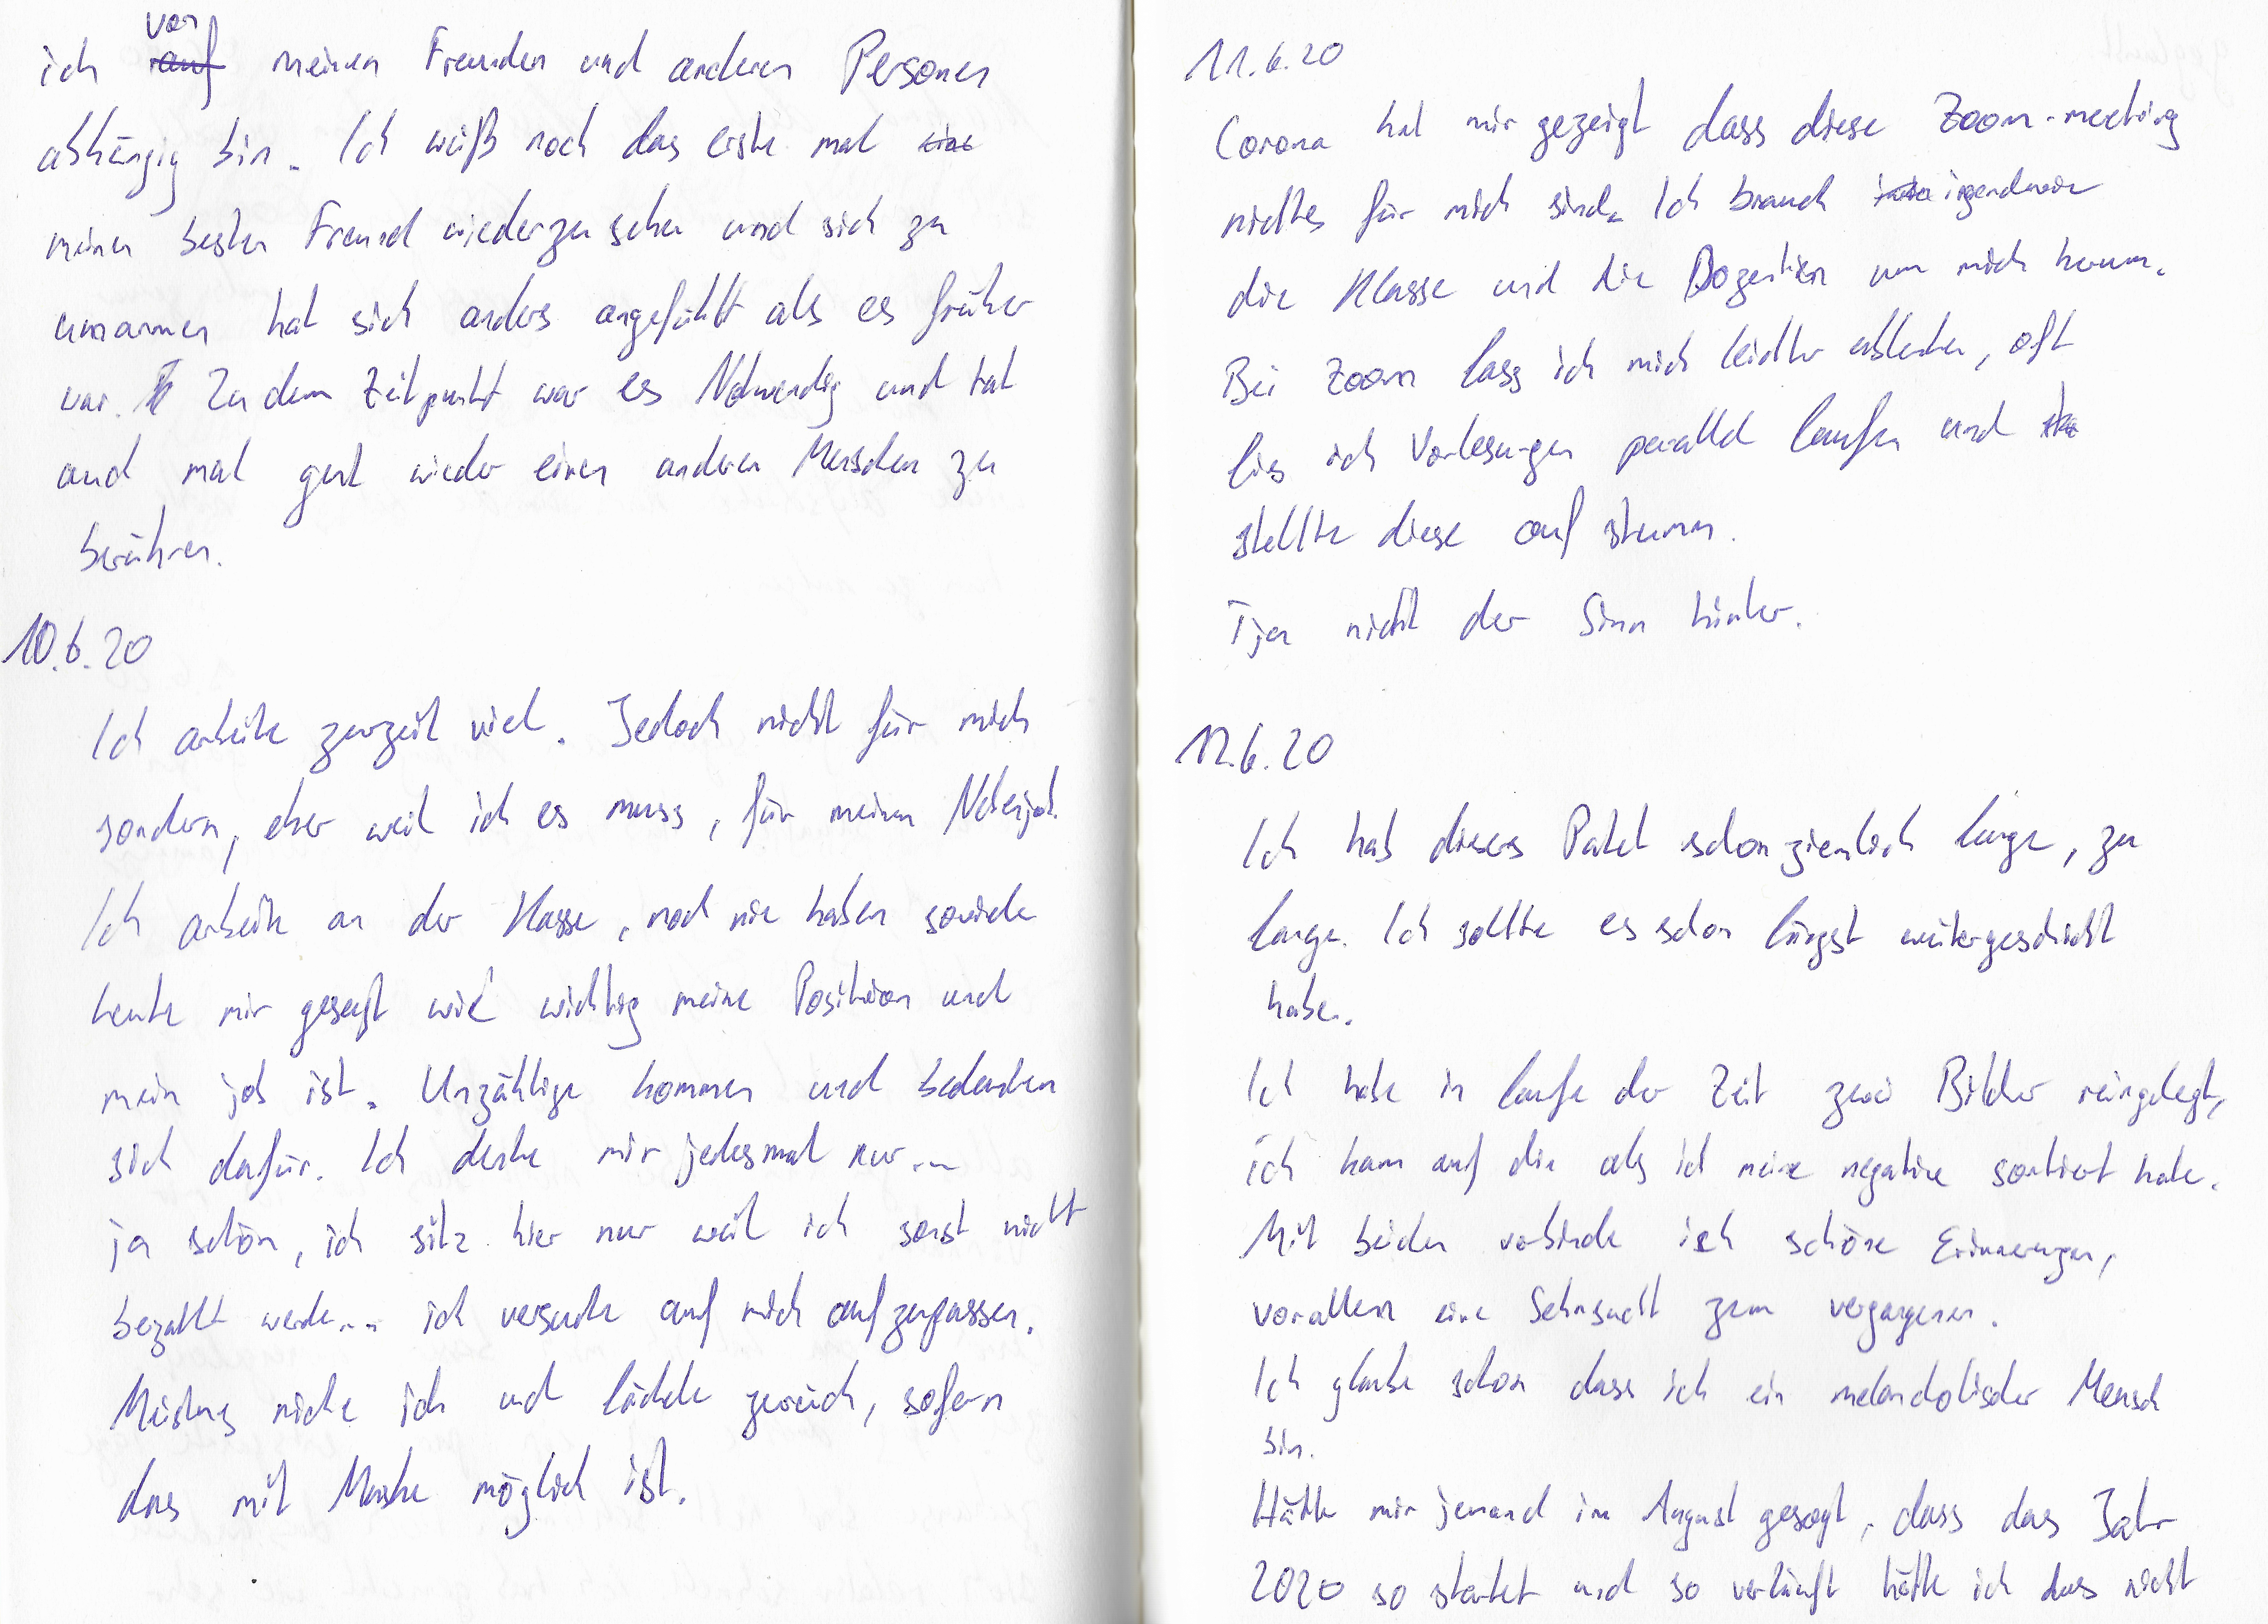 vor
ich auf meinen Freunden und anderen Personen
abhängig bin. Ich weiß noch das erste mal
meinen besten Freund wiederzusehen und sich zu
umarmen hat sich anders angefühlt als es früher
war. Zu dem Zeitpunkt war es Notwendig und hat
und mal gut wieder einen anderen Menschen zu
berühren.
10.6.20
Ich arbeite zurzeit viel. Jedoch nicht für mich
sondern, eher weil ich es muss, für meinen Nebenjob.
Ich arbeite an der Kasse, noch nie haben soviele
heute mir gesagt wie wichtig meine Position und
mein job ist. Unzählige kommen und bedanken
sich dafür. Ich denke mir jedesmal nur...
ja schön, ich sitz hier nur weil ich sonst nicht
bezahlt werde... ich versuche auf mich aufzupassen.
Meistens nicke ich und lächle zurück, sofern
das mit Maske möglich ist.
11.6.20
Corona hat mir gezeigt dass diese Zoom-meeting
nichts für mich sind. Ich brauch irgendwie
die Klasse und die Dozentien um mich herum.
Bei Zoom lass ich mich leichter ablenken, oft
lies ich Vorlesungen parallel laufen und
stellte diese auf stumm.
Tja nicht der Sinn hinter.
12.6.20
Ich hab dieses Paket schon ziemlich lange, zu
lange. Ich sollte es schon längst weitergeschickt
haben.
Ich habe in laufe der Zeit zwei Bilder reingelegt,
ich kam auf die als ich meine negative sortiert habe.
Mit beiden verbinde ich schöne Erinnerungen,
vorallem eine Sehnsucht zum vergangenen.
Ich glaube schon dass ich ein melancholischer Mensch
bin.
Hätte mir jemand im August gesagt, dass das Jahr
2020 so startet und so verläuft hätte ich das nicht